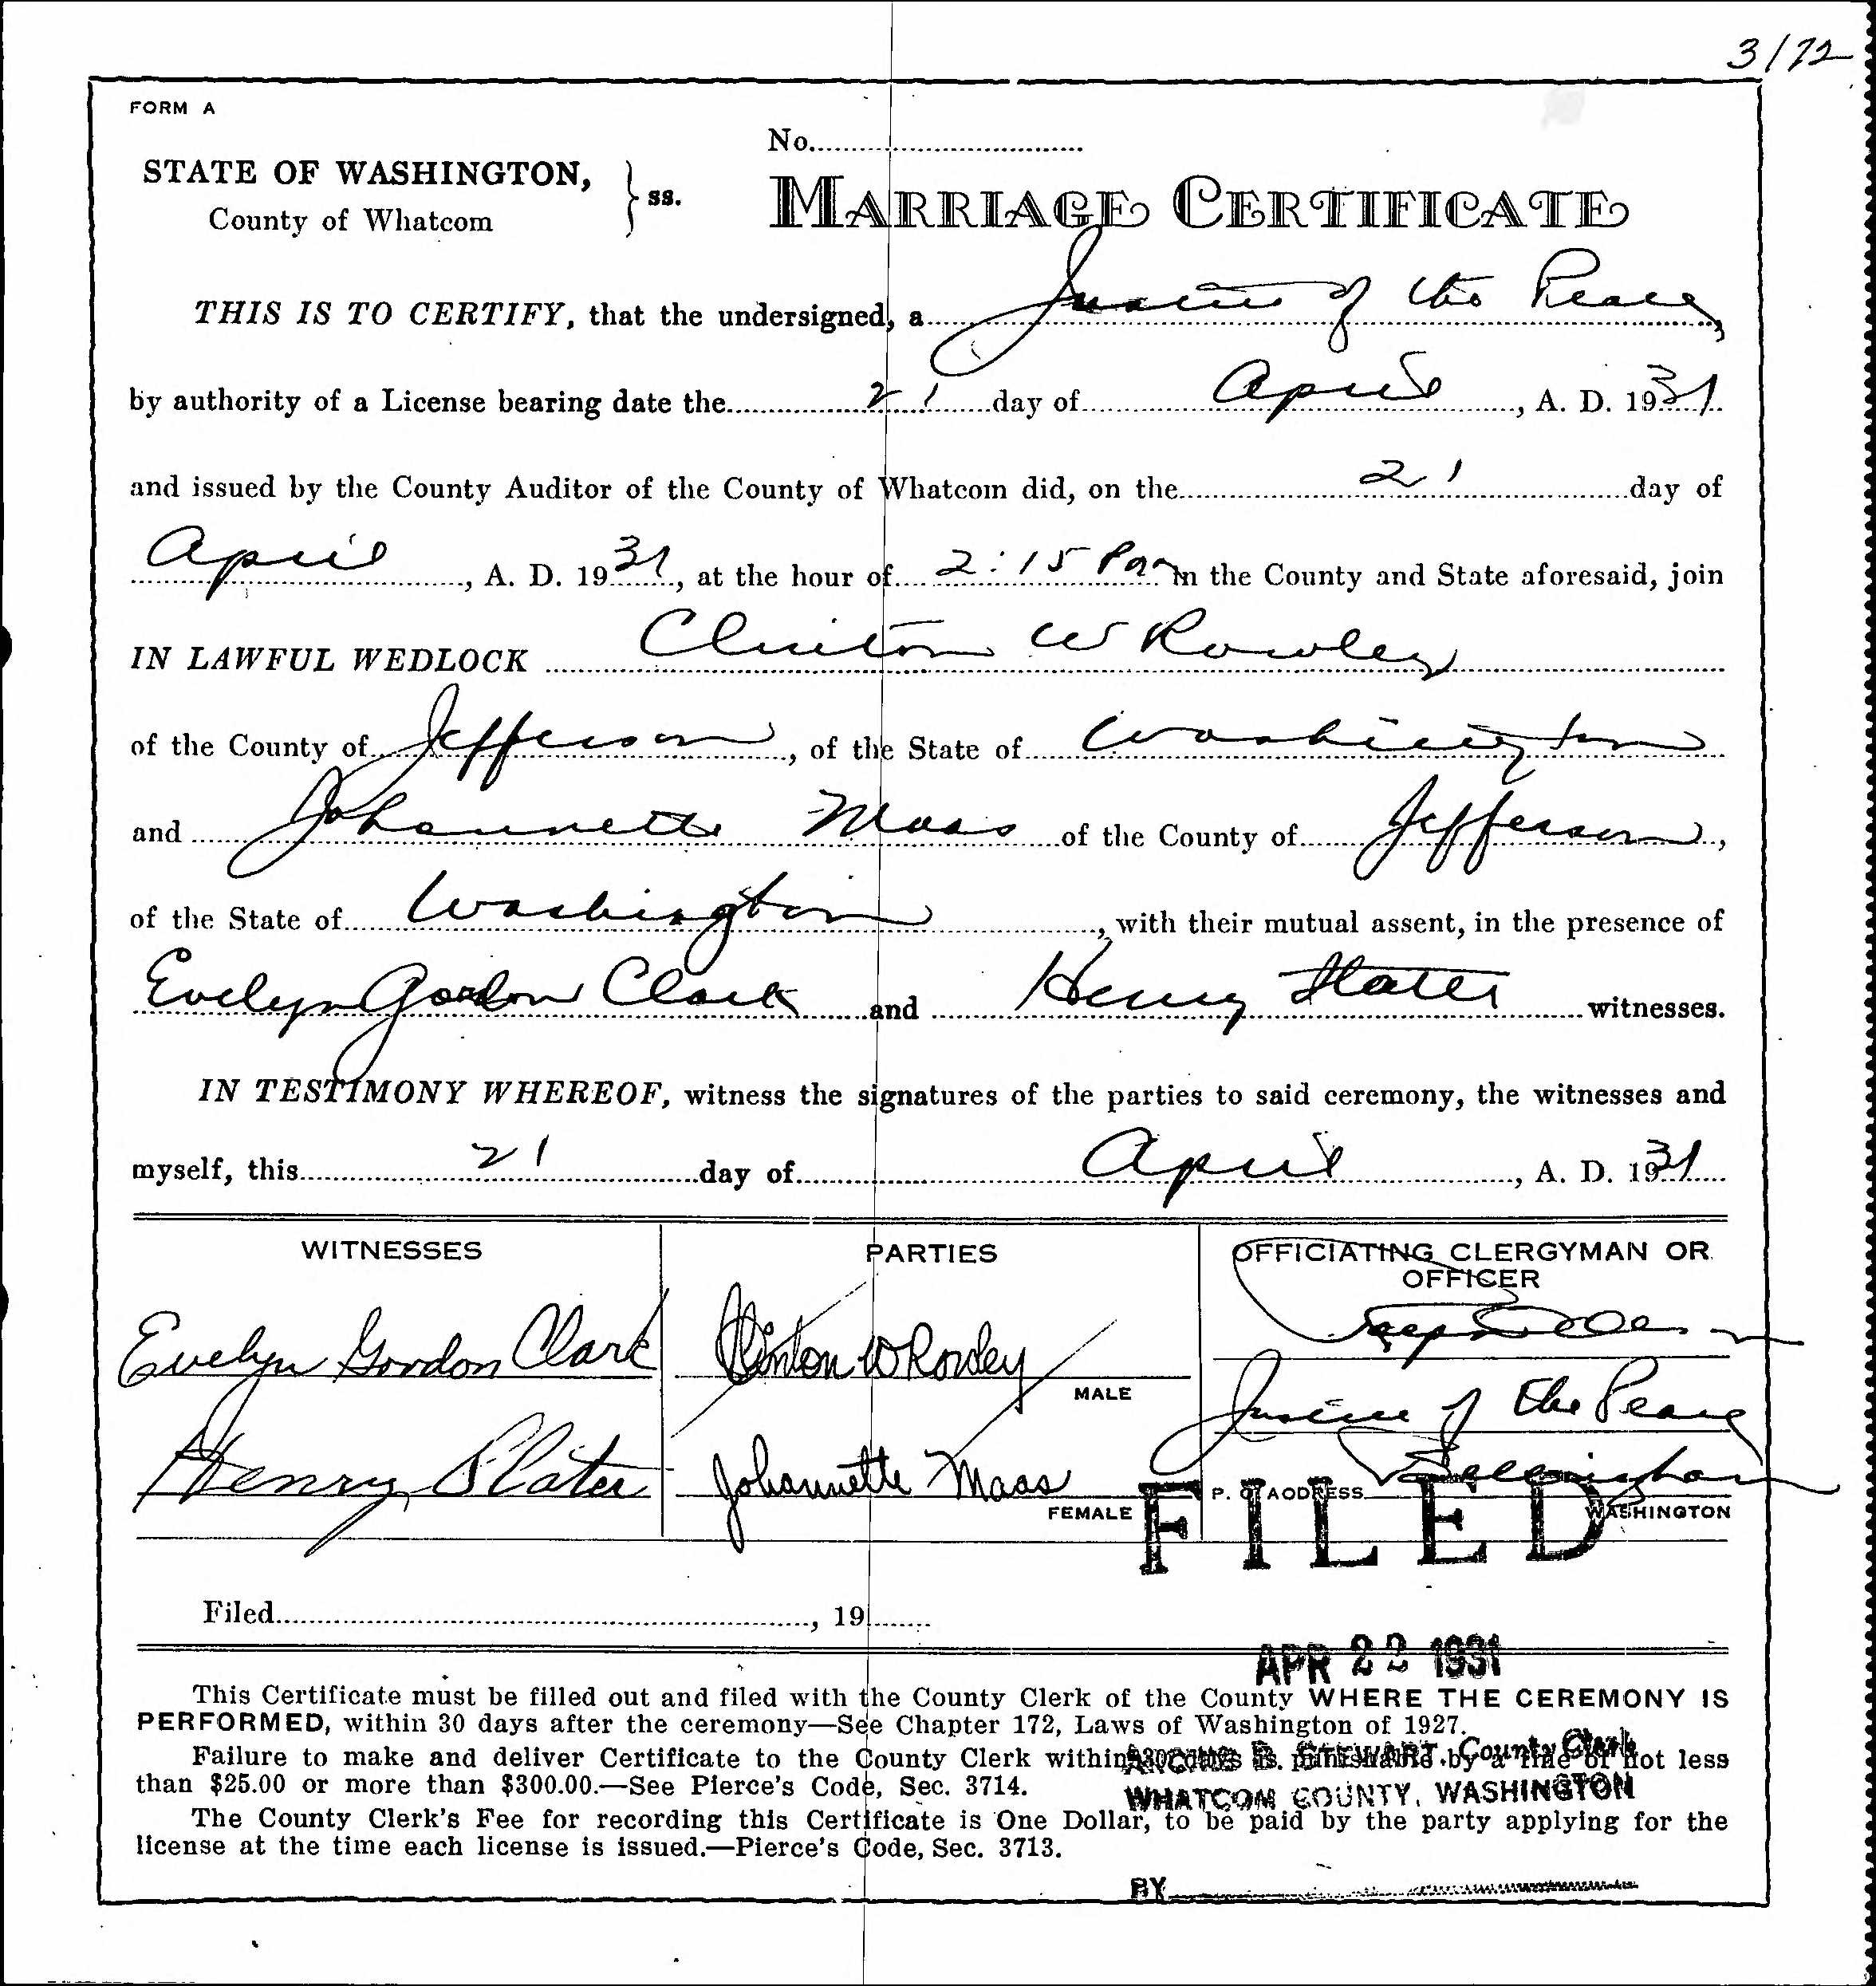 3172
FORM A
No.
STATE OF WASHINGTON,
County of Whatcom
} ss.
MARRIAGE CERTIFICATE
THIS IS TO CERTIFY, that the undersigned, a Justice of the Peace,
by authority of a License bearing date the 21 day of April, A. D. 1931
and issued by the County Auditor of the County of Whatcom did, on the 21 day of
April, A. D. 1931, at the hour of 2:15 P m in the County and State aforesaid, join
IN LAWFUL WEDLOCK Clinton W Rowley
of the County of Jefferson, of the State of Washington
and Johannette Maas of the County of Jefferson,
of the State of Washington, with their mutual assent, in the presence of
Evelyn Gordon Clark and Henry Slater witnesses.
IN TESTIMONY WHEREOF, witness the signatures of the parties to said ceremony, the witnesses and
myself, this 21 day of April, A. D. 1931
WITNESSES
PARTIES
OFFICIATING CLERGYMAN OR
OFFICER
Evelyn Gordon Clark
Clinton W Rowley
MALE
Justice of the Peace
Henry Slater
Johannette Maas
FEMALE
Bellingham
P. O. ADDRESS
WASHINGTON
FILED
Filed, 19
APR 22 1931
This Certificate must be filled out and filed with the County Clerk of the County WHERE THE CEREMONY IS
PERFORMED, within 30 days after the ceremony—See Chapter 172, Laws of Washington of 1927.
Failure to make and deliver Certificate to the County Clerk within 30 days is punishable by a fine of not less
than $25.00 or more than $300.00.—See Pierce's Code, Sec. 3714.
B. STEWART. County Clerk
WHATCOM COUNTY, WASHINGTON
The County Clerk's Fee for recording this Certificate is One Dollar, to be paid by the party applying for the
license at the time each license is issued.—Pierce's Code, Sec. 3713.
BY